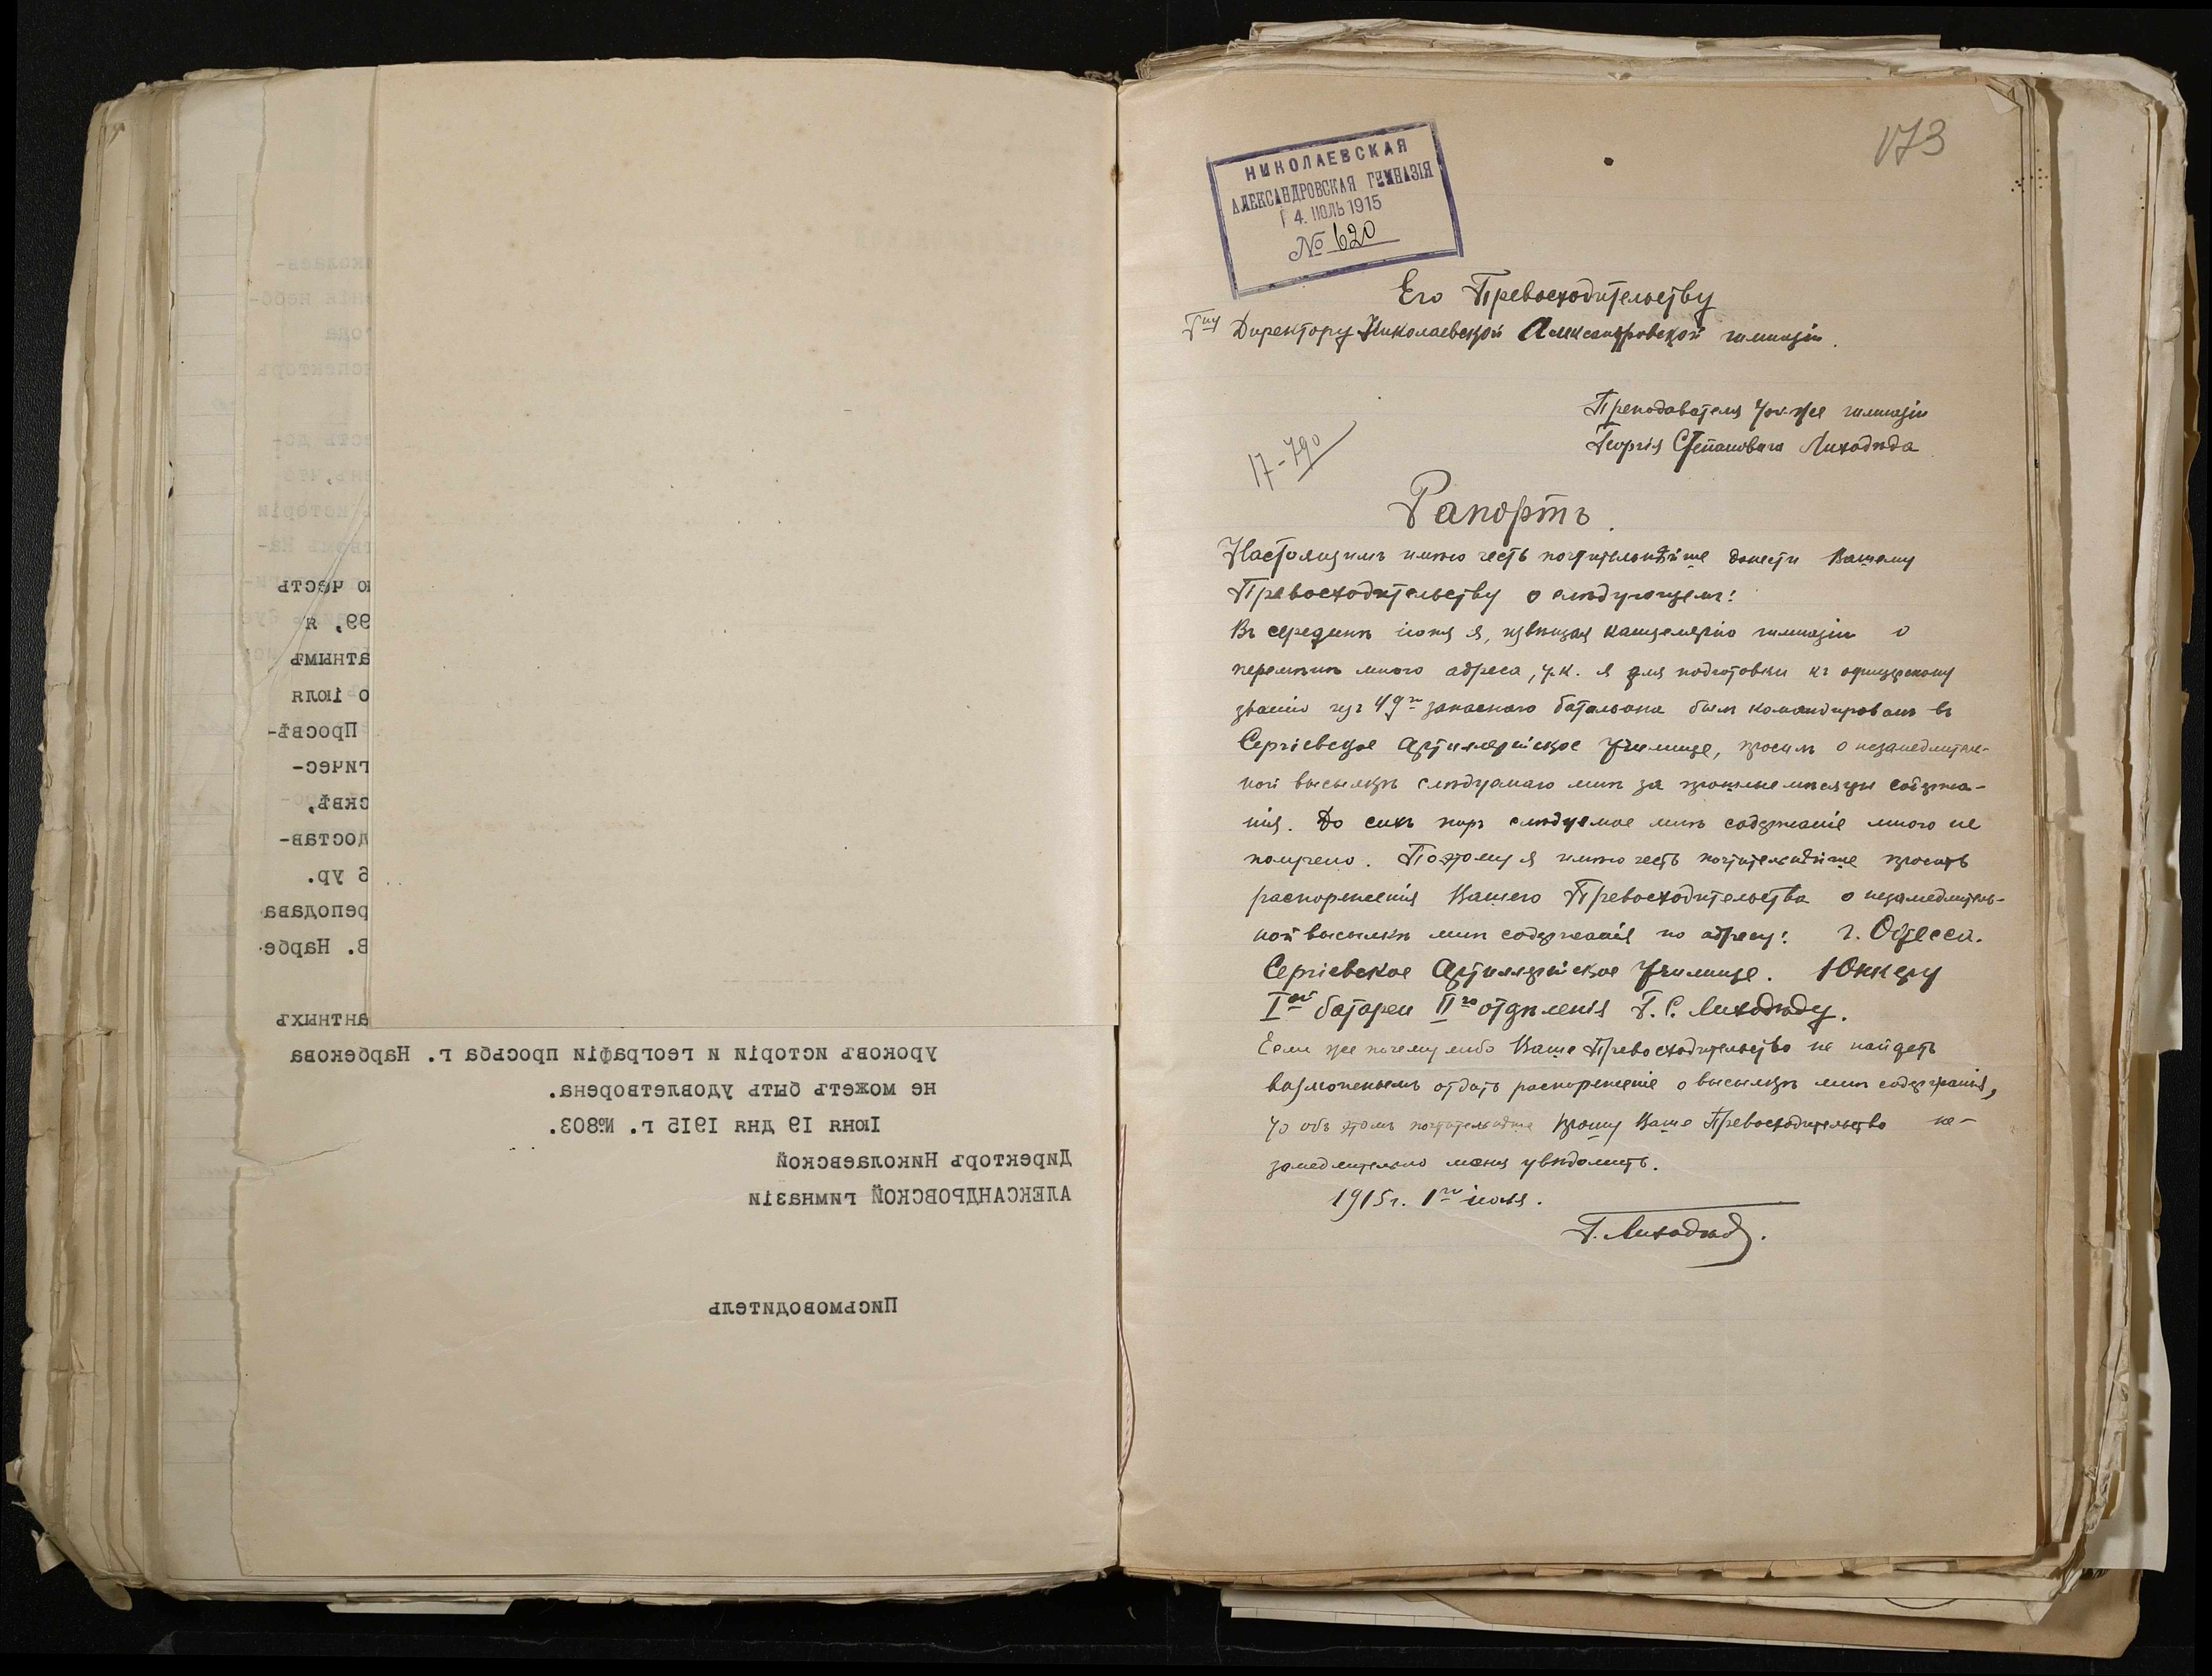 уроковъ исторіи и географіи просьба г. Нарбекова
не можетъ быть удовлетворена.
Іюня 19 дня 1915 г. №803.
Директоръ Николаевской
АЛЕКСАНДРОВСКОЙ гимназіи
Письмоводитель
ю честь
99, я
атнымъ
о іюля
Просвѣ-
гичес-
сквѣ,
достав-
6 ур.
реподава
В. Нарбе-
антныхъ
173
НИКОЛАЕВСКАЯ
АЛЕКСАНДРОВСКАЯ ГИМНАЗІЯ
4. ІЮЛЬ 1915
№ 620
Его Превосходительству
Гну Директору Николаевской Александровской гимназіи.
Преподавателя той-же гимназіи
Георгія Степановича Лиходѣда
17-790
Рапортъ.
Настоящимъ имѣю честь почтительнѣйше донести Вашему
Превосходительству о слѣдующемъ:
Въ серединѣ іюня я, извѣщая канцелярію гимназіи о
перемѣнѣ моего адреса, т.к. я для подготовки къ офицерскому
званію изъ 49го запаснаго баталіона былъ командированъ въ
Сергіевское Артиллерійское Училище, просилъ о незамедлитель-
ной высылкѣ слѣдуемаго мнѣ за прошлые мѣсяцы содержа-
нія. До сихъ поръ слѣдуемое мнѣ содержаніе мною не
получено. Поэтому я имѣю честь почтительнѣйше просить
распоряженія Вашего Превосходительства о незамедлитель-
ной высылкѣ мнѣ содержанія по адресу: г. Одесса.
Сергіевское Артиллерійское Училище. Юнкеру
Iой батареи IIго отдѣленія Г. С. Лиходѣду.
Если же почему либо Ваше Превосходительство не найдетъ
возможнымъ отдать распоряженіе о высылкѣ мнѣ содержанія,
то объ этомъ почтительнѣйше прошу Ваше Превосходительство не-
замедлительно меня увѣдомить.
1915 г. 1го іюля.
Г. Лиходѣд.